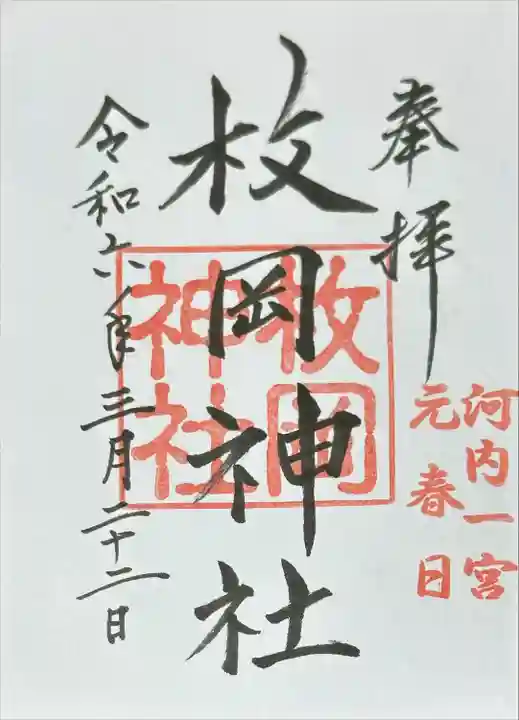 奉拝
河内一宮
元春日
枚岡神社
枚岡神社
令和六年三月二十二日